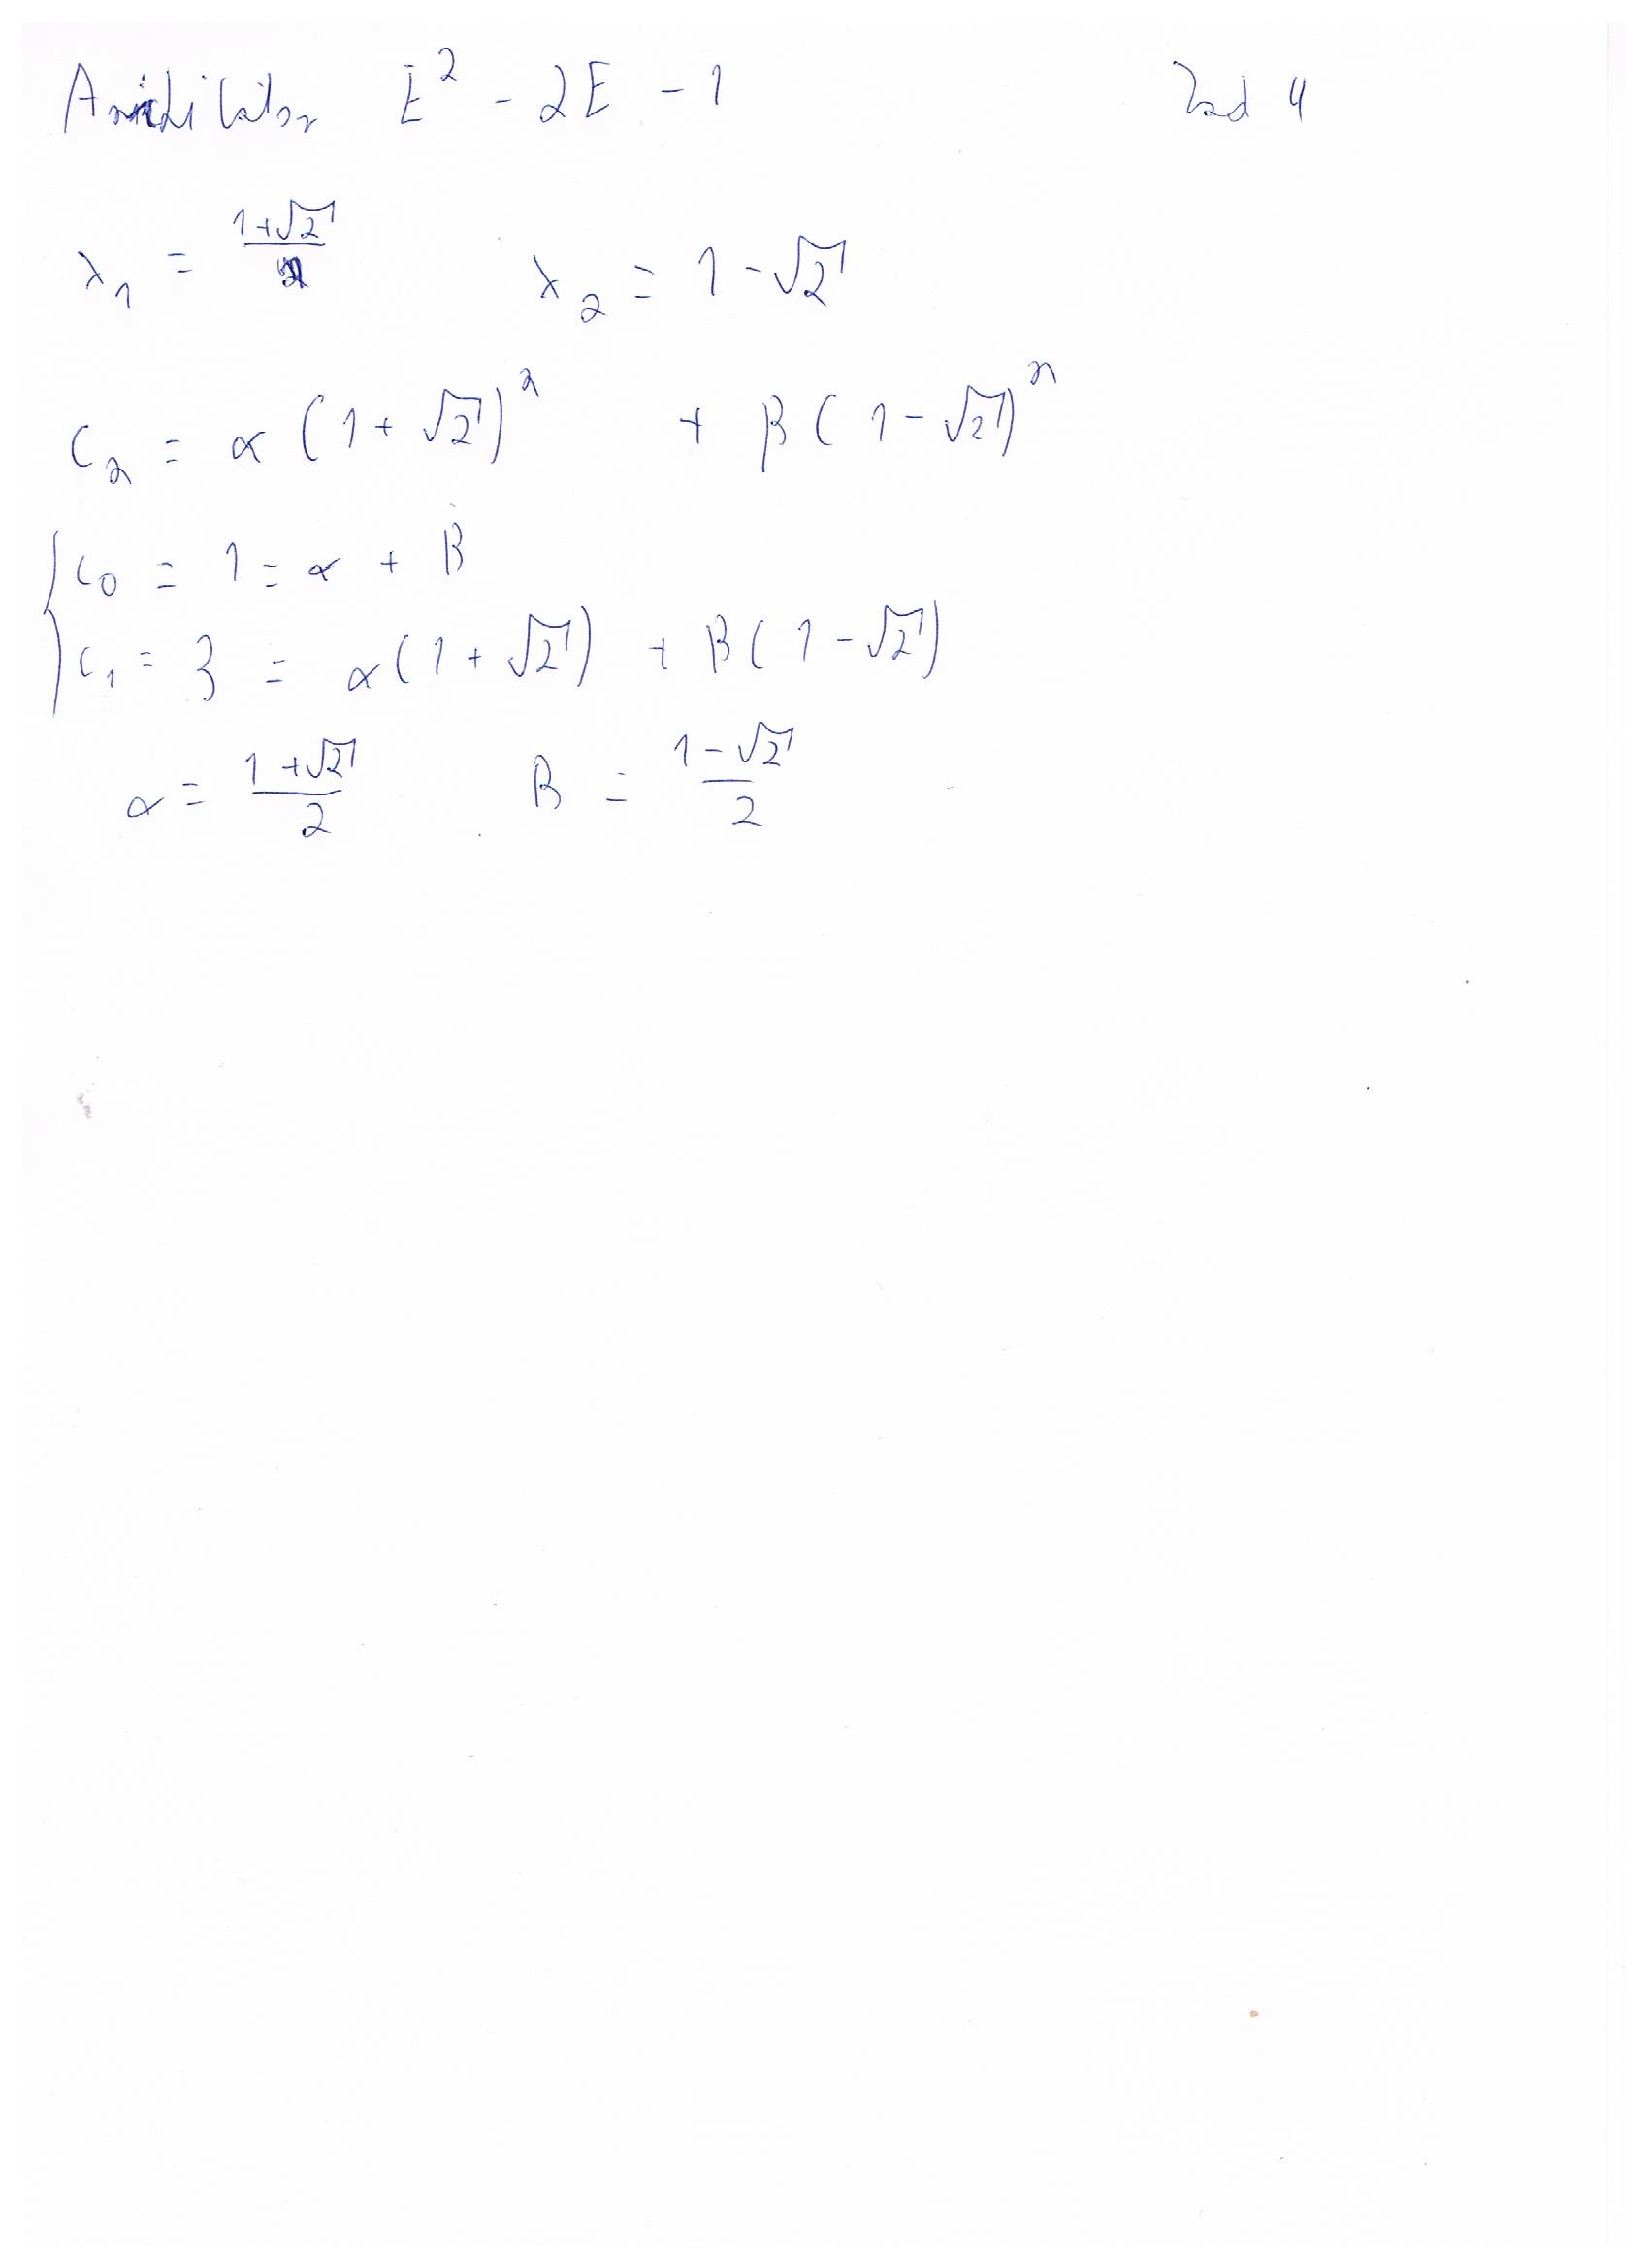 Anihilator E² - 2E - 1 Zad 4
λ₁ = (1+√2)/1 λ₂ = 1-√2
Cₙ = α (1+√2)ⁿ + β(1-√2)ⁿ
C₀ = 1 = α + β
C₁ = 3 = α(1+√2) + β(1-√2)
α = (1+√2)/2 β = (1-√2)/2